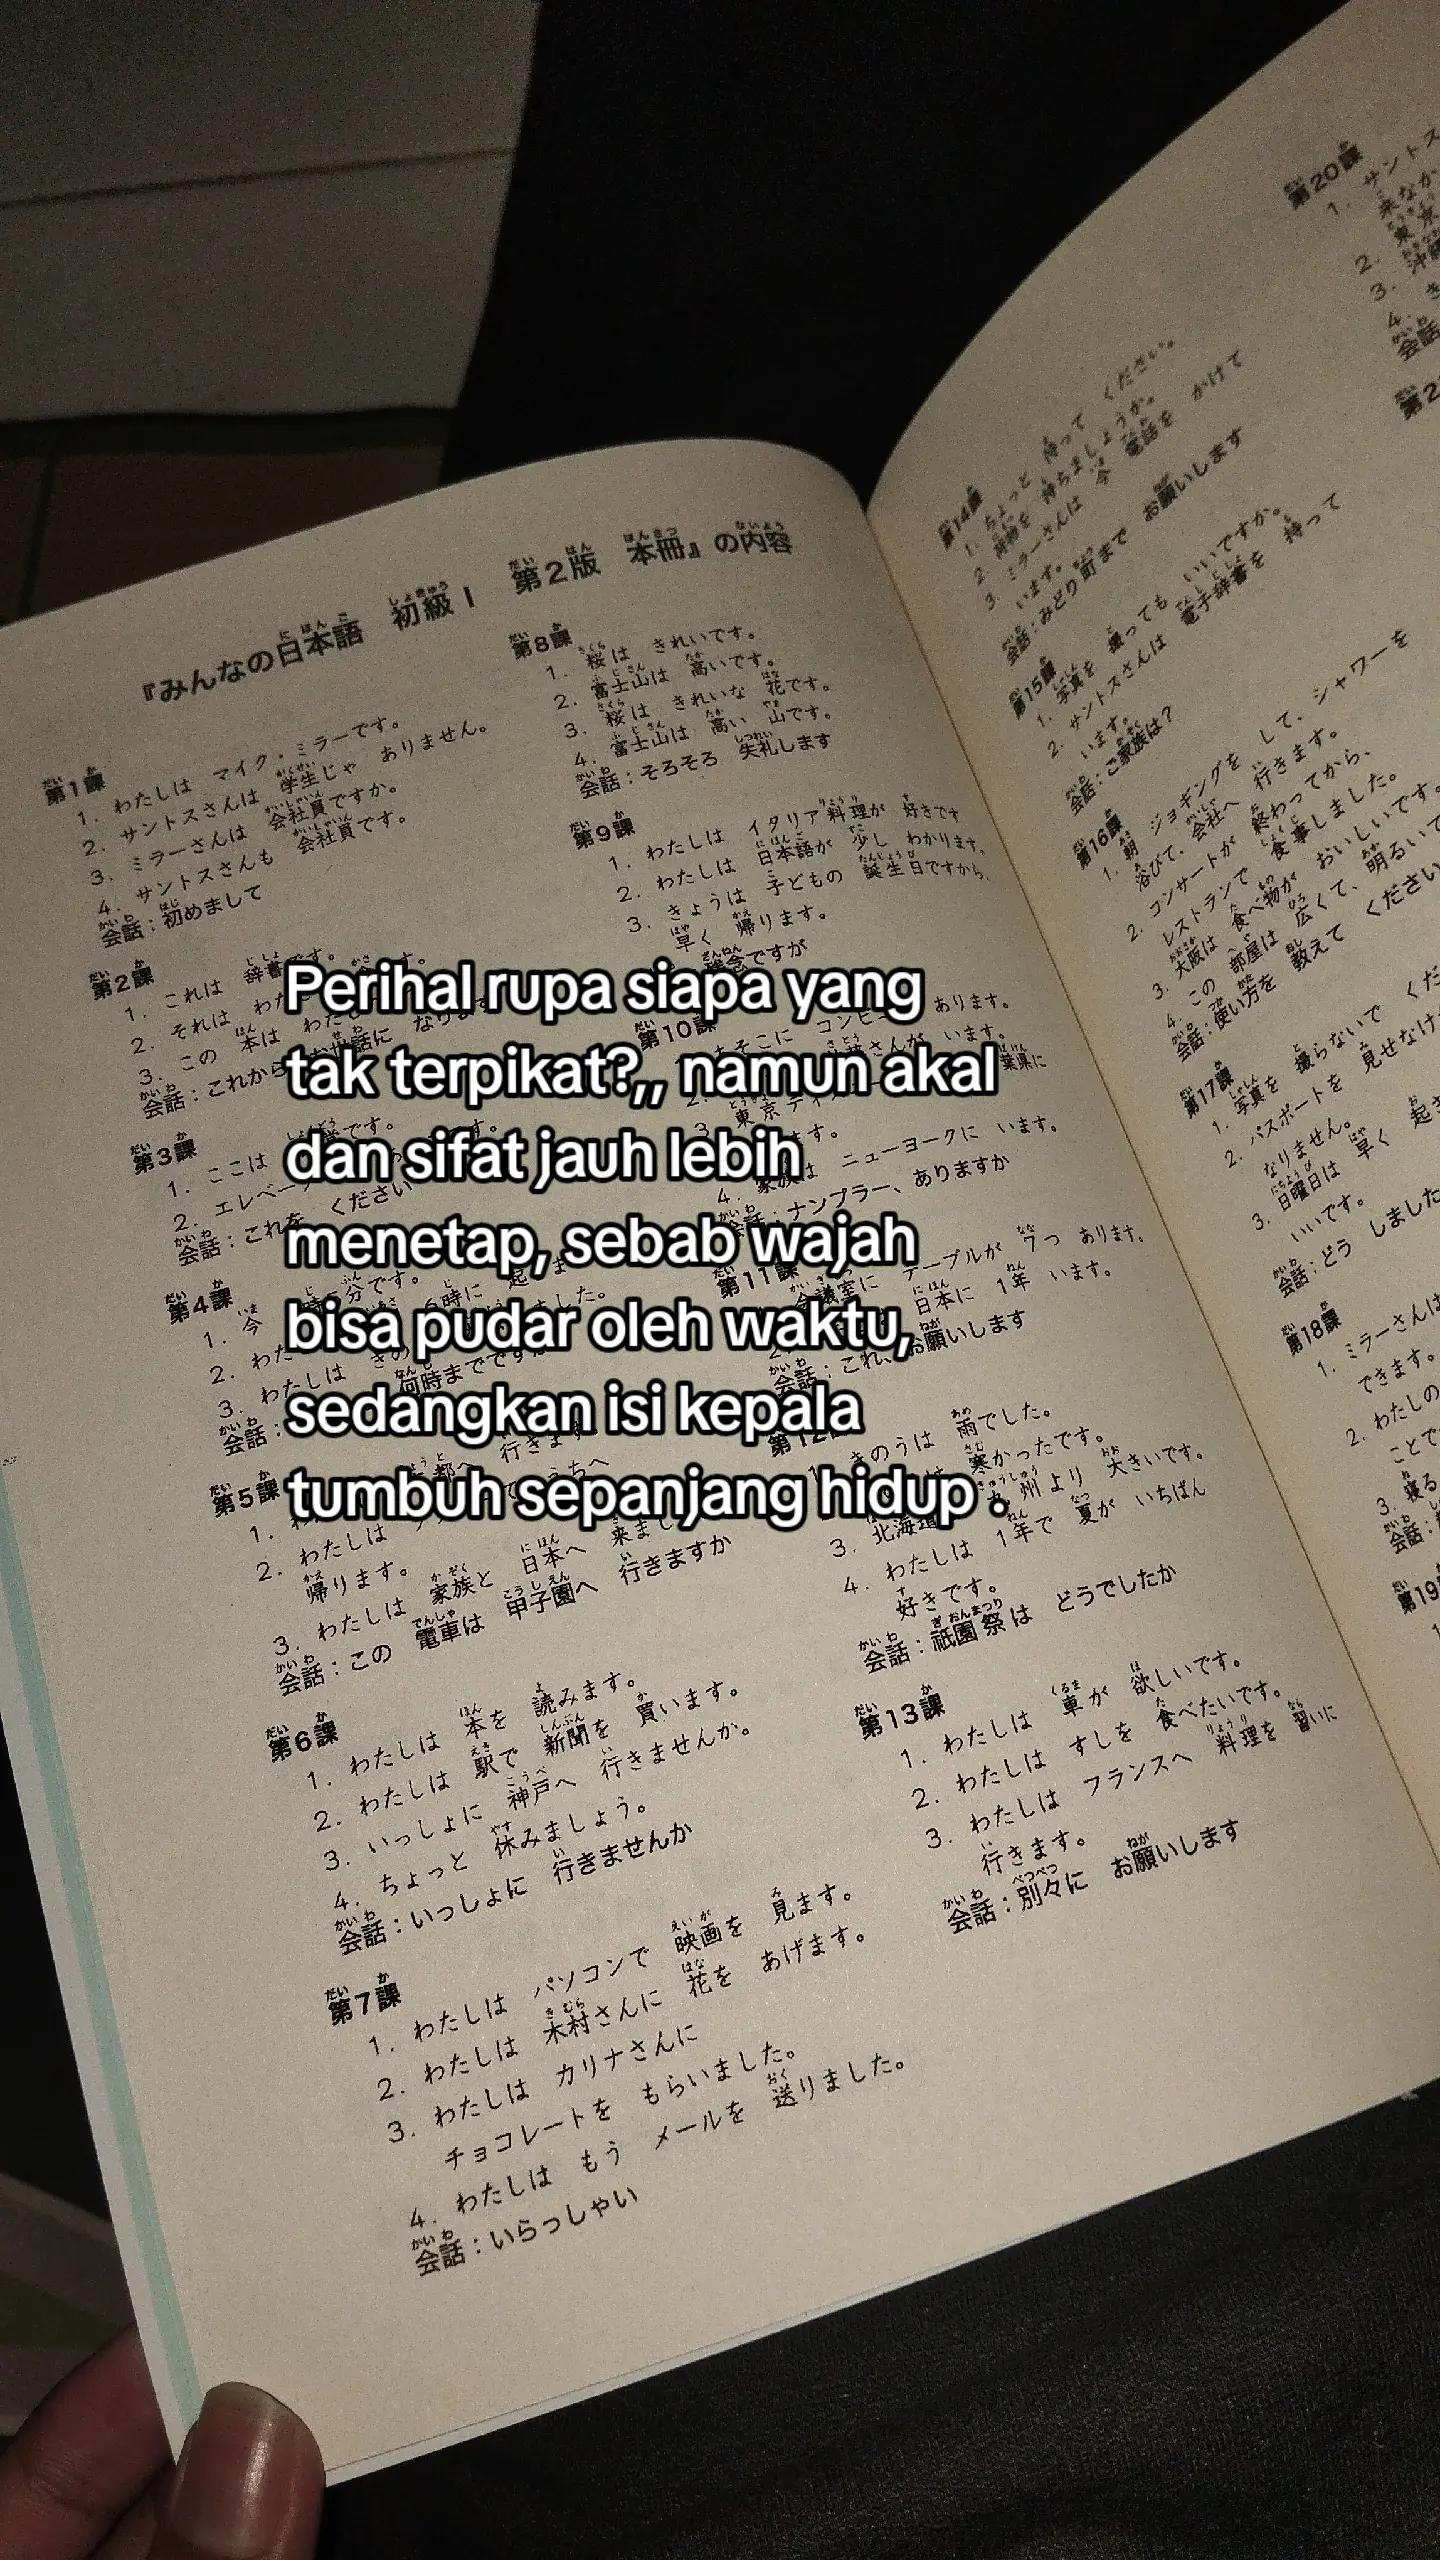 Perihal rupa siapa yang
tak terpikat?,, namun akal
dan sifat jauh lebih
menetap, sebab wajah
bisa pudar oleh waktu,
sedangkan isi kepala
tumbuh sepanjang hidup .
『みんなの日本語 初級Ⅰ 第2版 本冊』の内容
第1課
1. わたしは マイク・ミラーです。
2. サントスさんは 学生じゃ ありません。
3. ミラーさんは 会社員ですか。
4. サントスさんも 会社員です。
会話：初めまして
第2課
1. これは 辞書です。
2. それは わた
3. この 本は わたし
会話：これから お世話に なります
第3課
1. ここは
2. エレベー
会話：これを ください
第4課
1. 今 分です。
2. わた 6時に 起
3. わたしは きの ました。
会話： 何時までですか
第5課
1. 行きます。
2. わたしは うちへ
帰ります。
3. わたしは 家族と 日本へ 来まし
会話：この 電車は 甲子園へ 行きますか
第6課
1. わたしは 本を 読みます。
2. わたしは 駅で 新聞を 買います。
3. いっしょに 神戸へ 行きませんか。
4. ちょっと 休みましょう。
会話：いっしょに 行きませんか
第7課
1. わたしは パソコンで 映画を 見ます。
2. わたしは 木村さんに 花を あげます。
3. わたしは カリナさんに
チョコレートを もらいました。
4. わたしは もう メールを 送りました。
会話：いらっしゃい
第8課
1. 桜は きれいです。
2. 富士山は 高いです。
3. 桜は きれいな 花です。
4. 富士山は 高い 山です。
会話：そろそろ 失礼します
第9課
1. わたしは イタリア料理が 好きです
2. わたしは 日本語が 少し わかります。
3. きょうは 子どもの 誕生日ですから、
早く 帰ります。
残念ですが
第10課
あそこに コンビ あります。
さんが います。
東京ディ 葉県に
ます。
4. 家族は ニューヨークに います。
会話：ナンプラー、ありますか
第11課
会議室に テーブルが 7つ あります。
日本に 1年 います。
会話：これ、お願いします
第12課
きのうは 雨でした。
寒かったです。
3. 北海道 九州より 大きいです。
4. わたしは 1年で 夏が いちばん
好きです。
会話：祇園祭は どうでしたか
第13課
1. わたしは 車が 欲しいです。
2. わたしは すしを 食べたいです。
3. わたしは フランスへ 料理を 習いに
行きます。
会話：別々に お願いします
第14課
1. ちょっと 待って ください。
2. 荷物を 持ちましょうか。
3. ミラーさんは 今 電話を かけて
います。
会話：みどり町まで お願いします
第15課
1. 写真を 撮っても いいですか。
2. サントスさんは 電子辞書を 持って
います。
会話：ご家族は？
第16課
1. 朝 ジョギングを して、シャワーを
浴びて、会社へ 行きます。
2. コンサートが 終わってから、
レストランで 食事しました。
3. 大阪は 食べ物が おいしいです。
4. この 部屋は 広くて、明るいで
会話：使い方を 教えて ください
第17課
1. 写真を 撮らないで くだ
2. パスポートを 見せなけ
なりません。
3. 日曜日は 早く 起き
いいです。
会話：どう しました
第18課
1. ミラーさんは
できます。
2. わたしの
ことで
3. 寝る
会話：
第19
第20課
1. サントス
来なか
2. 東京
3. 沖縄
4. き
会話
第2